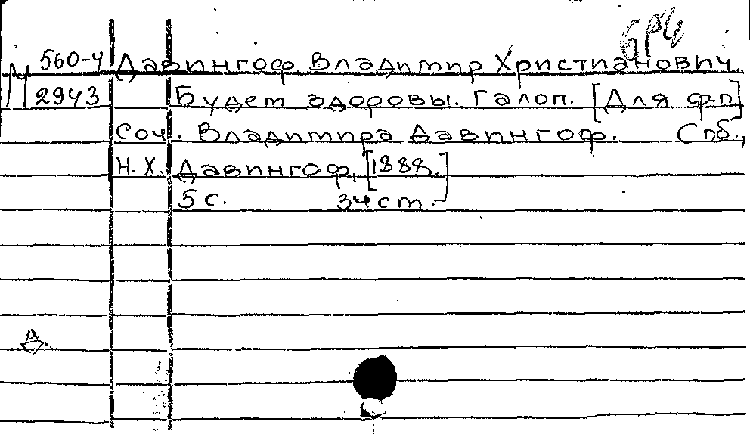 560-4 Давингоф Владимир Христианович
М 2943 Будет здоровы. Галоп. [Для ф.п.]
Соч. Владимира Давингоф. Спб.,
Н. Х. Давингоф, [1888.]
5 с. 34 ст.
Д